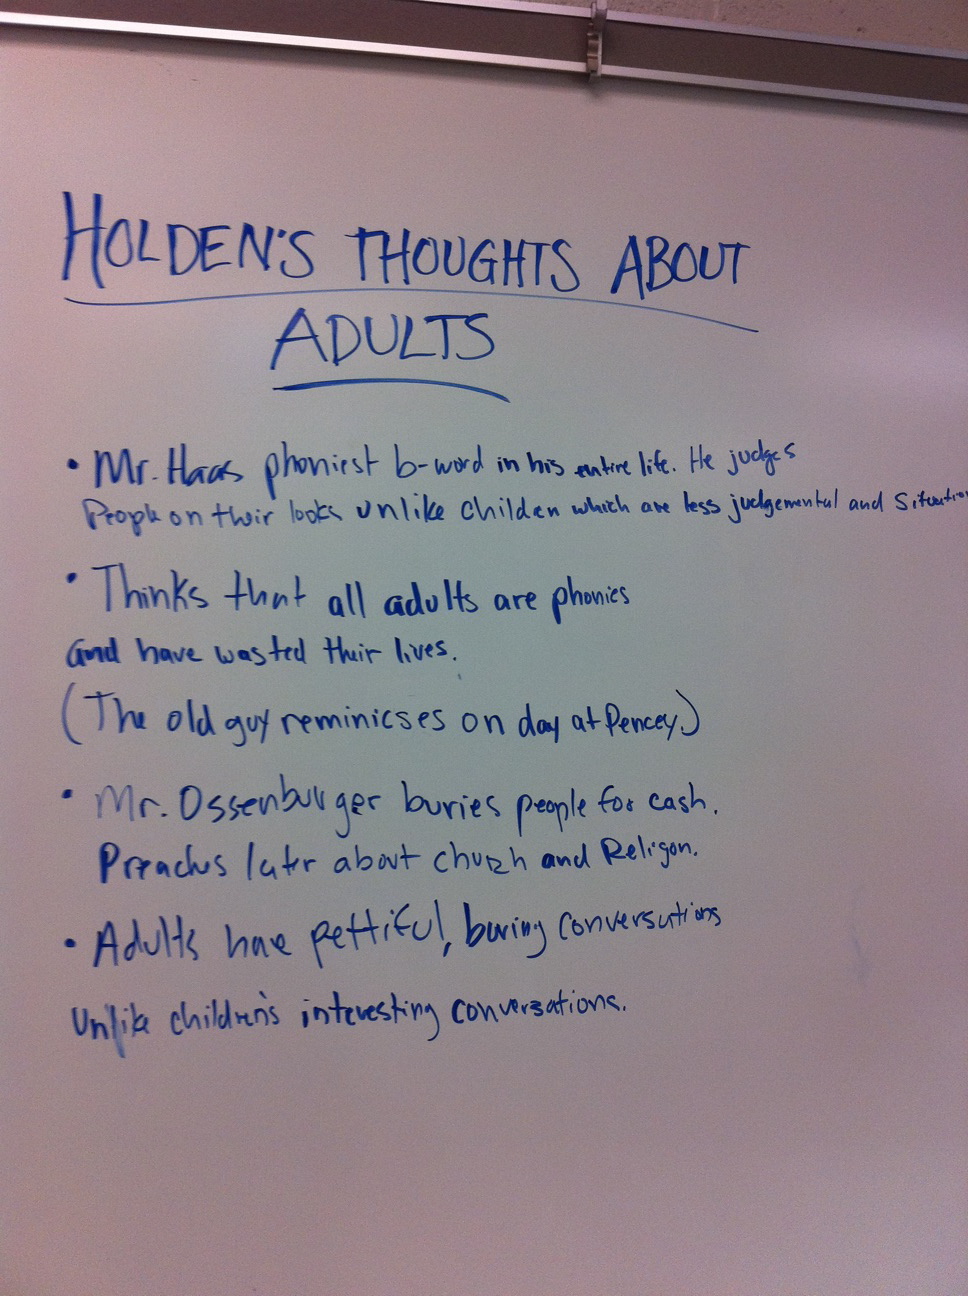 HOLDEN'S THOUGHTS ABOUT
ADULTS
• Mr. Haas phoniest b-word in his entire life. He judges
People on their looks unlike children which are less judgemental and Situation
• Thinks that all adults are phonies
and have wasted their lives.
(The old guy reminicses on day at Pencey.)
• Mr. Ossenburger buries people for cash.
Preaches later about church and Religon.
• Adults have pettiful, boring conversations
Unlike children's interesting conversations.